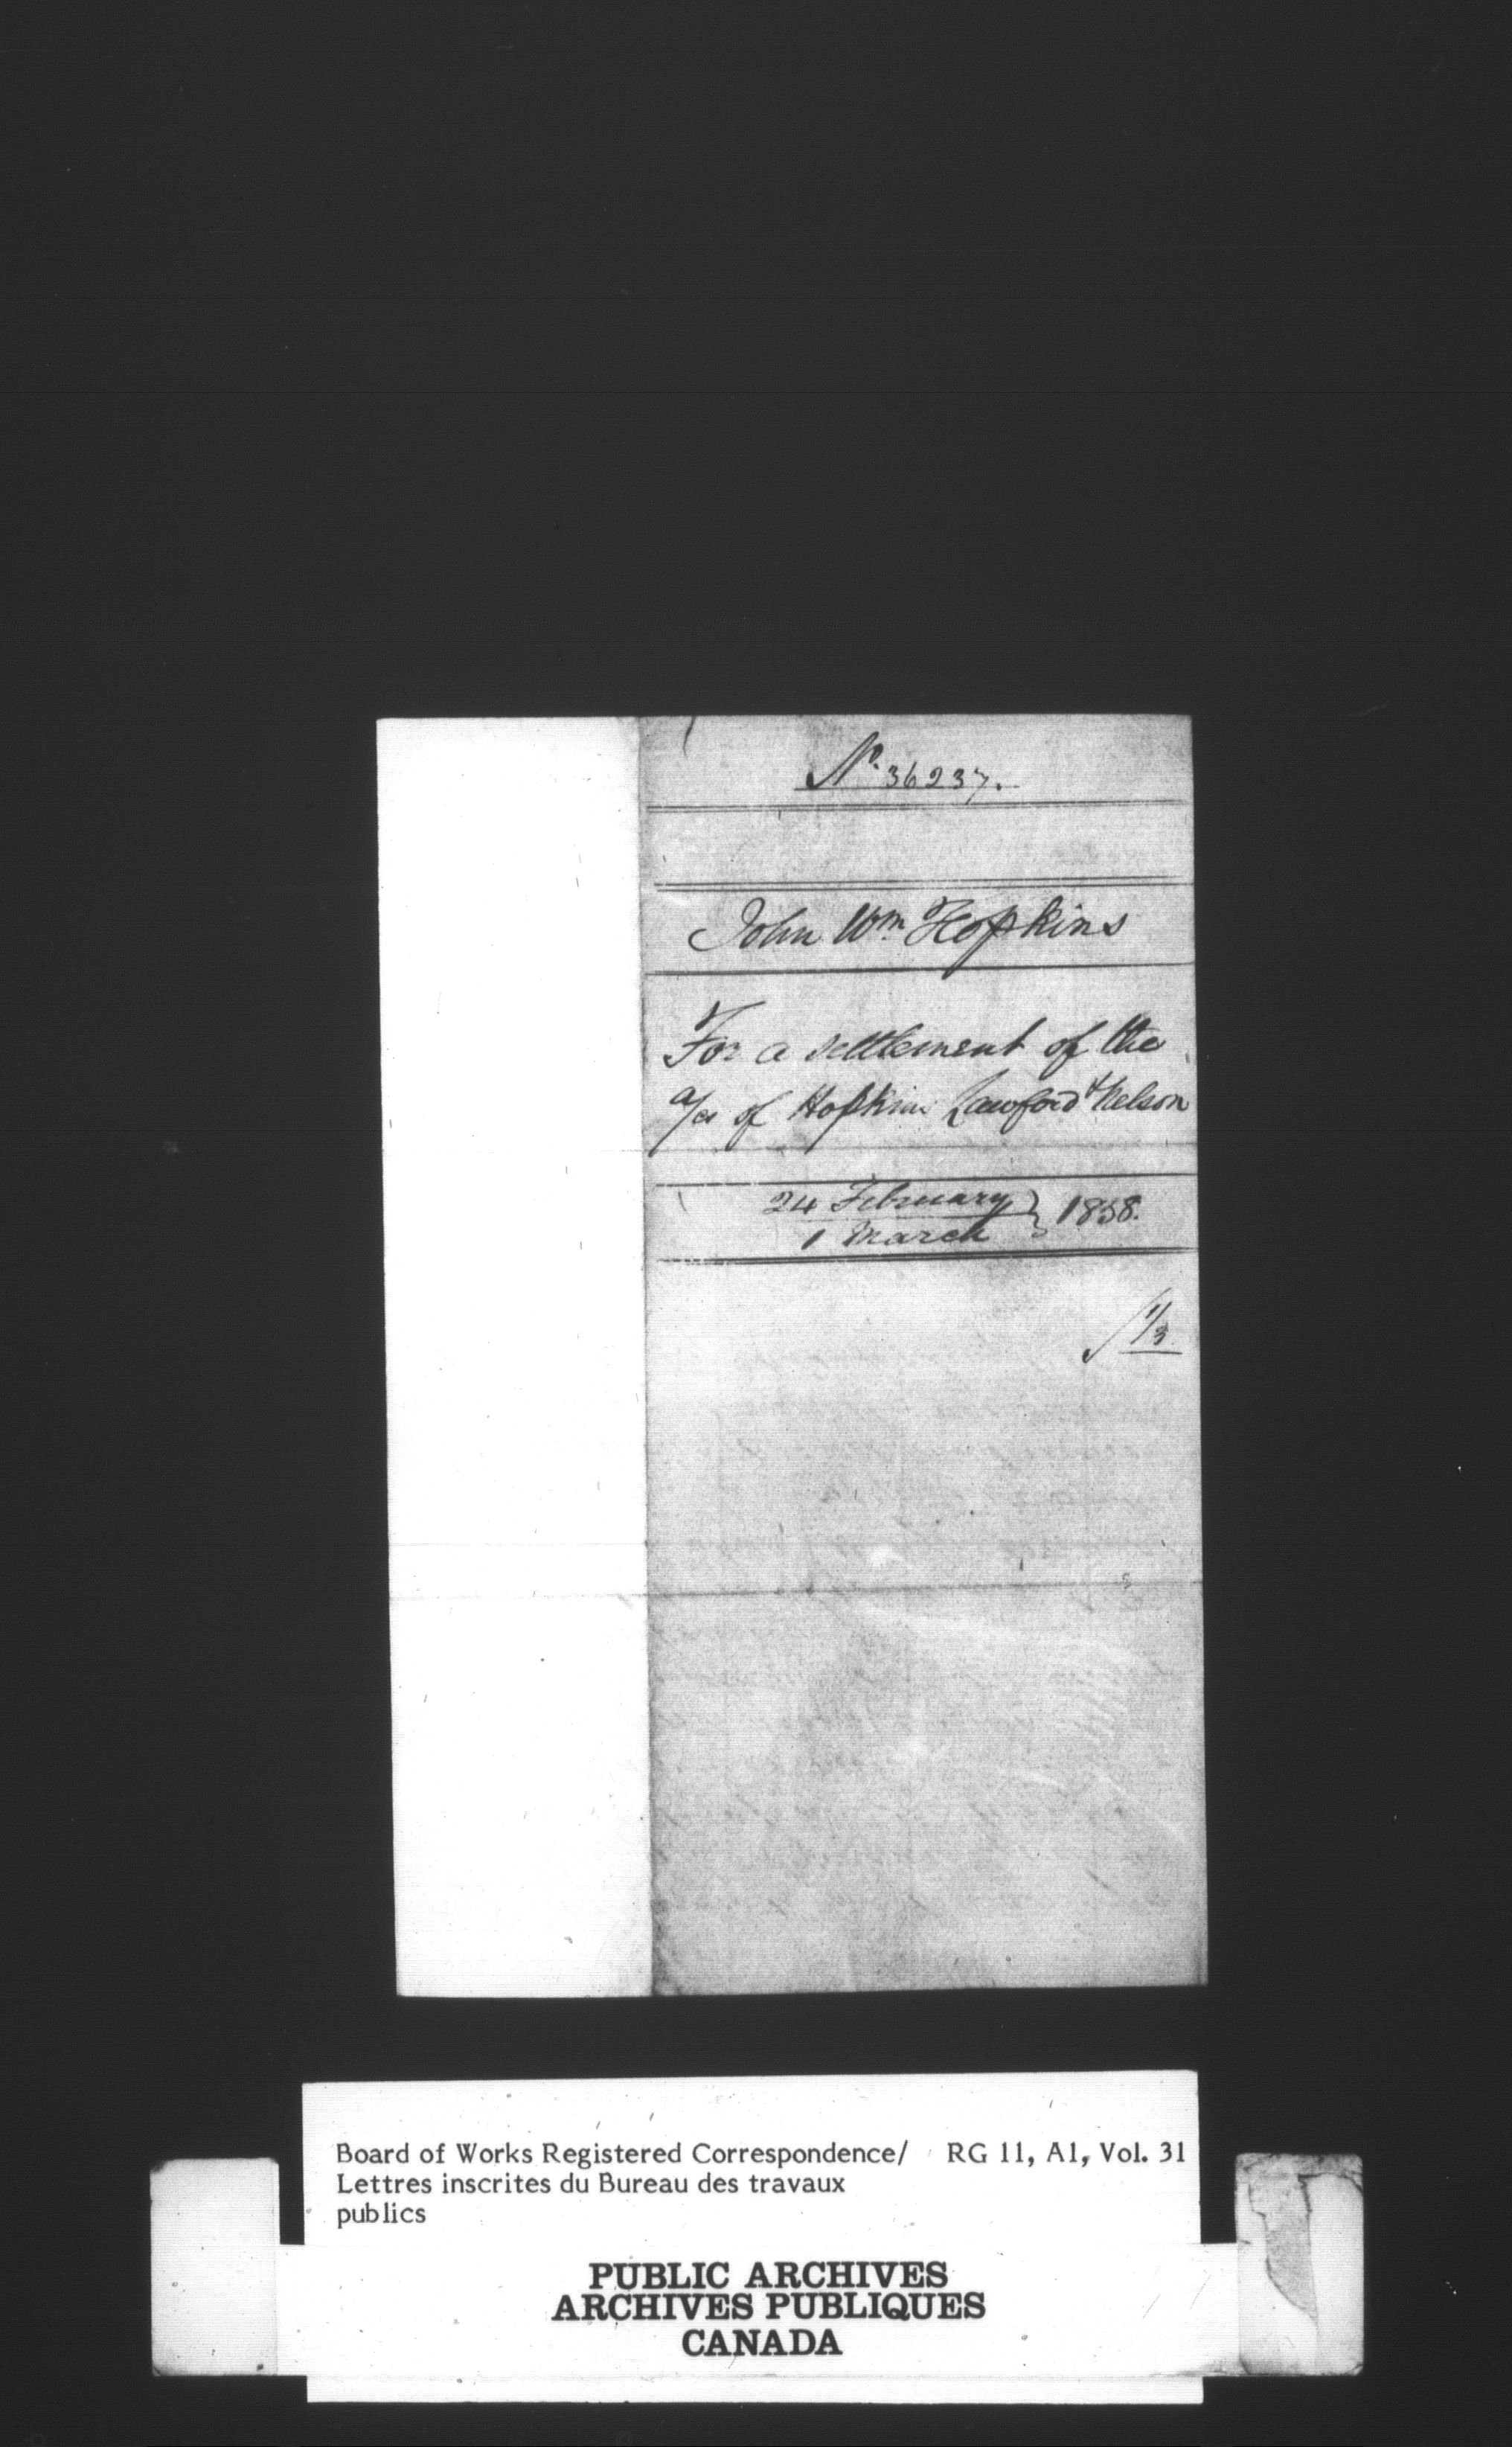 No. 36237.
John Wm. Hopkins
For a settlement of the
a/c of Hopkins Lawford & Nelson
24 February } 1858.
1 March
1/3
Board of Works Registered Correspondence/ RG 11, A1, Vol. 31
Lettres inscrites du Bureau des travaux
publics
PUBLIC ARCHIVES
ARCHIVES PUBLIQUES
CANADA